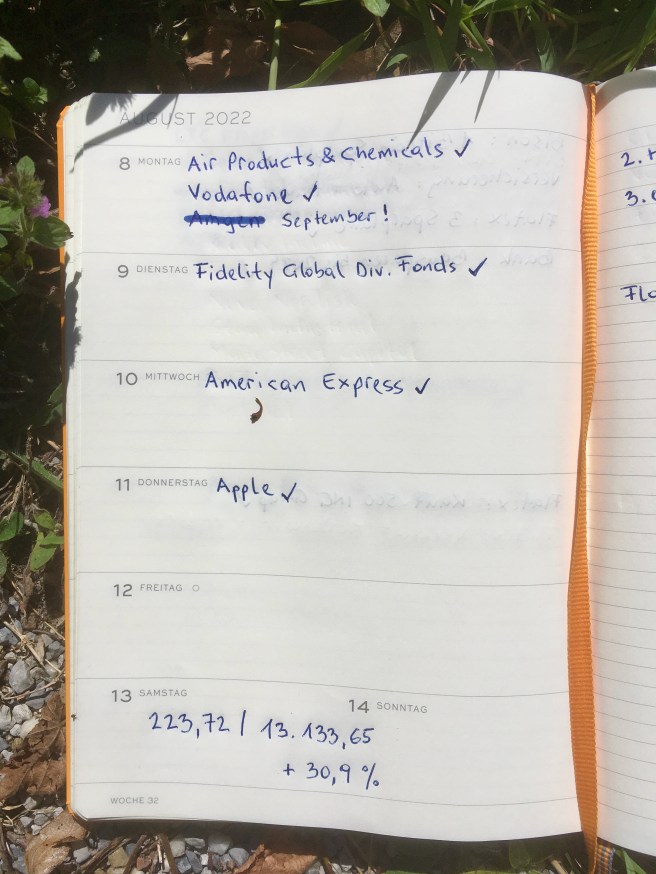 AUGUST 2022
8 MONTAG Air Products & Chemicals ✓
Vodafone ✓
Amgen September!
9 DIENSTAG Fidelity Global Div. Fonds ✓
10 MITTWOCH American Express ✓
11 DONNERSTAG Apple ✓
12 FREITAG ○
13 SAMSTAG
14 SONNTAG
223,72 / 13.133,65
+ 30,9 %
WOCHE 32
2.
3.
Flo